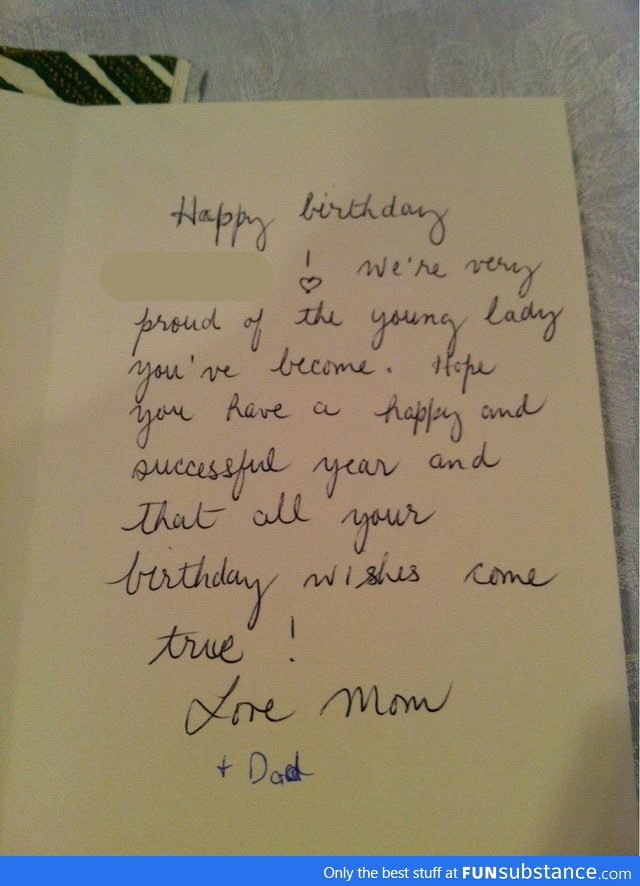 Happy birthday
! ♡ We're very
proud of the young lady
you've become. Hope
you have a happy and
successful year and
that all your
birthday wishes come
true !
Love Mom
+ Dad
Only the best stuff at FUNsubstance.com